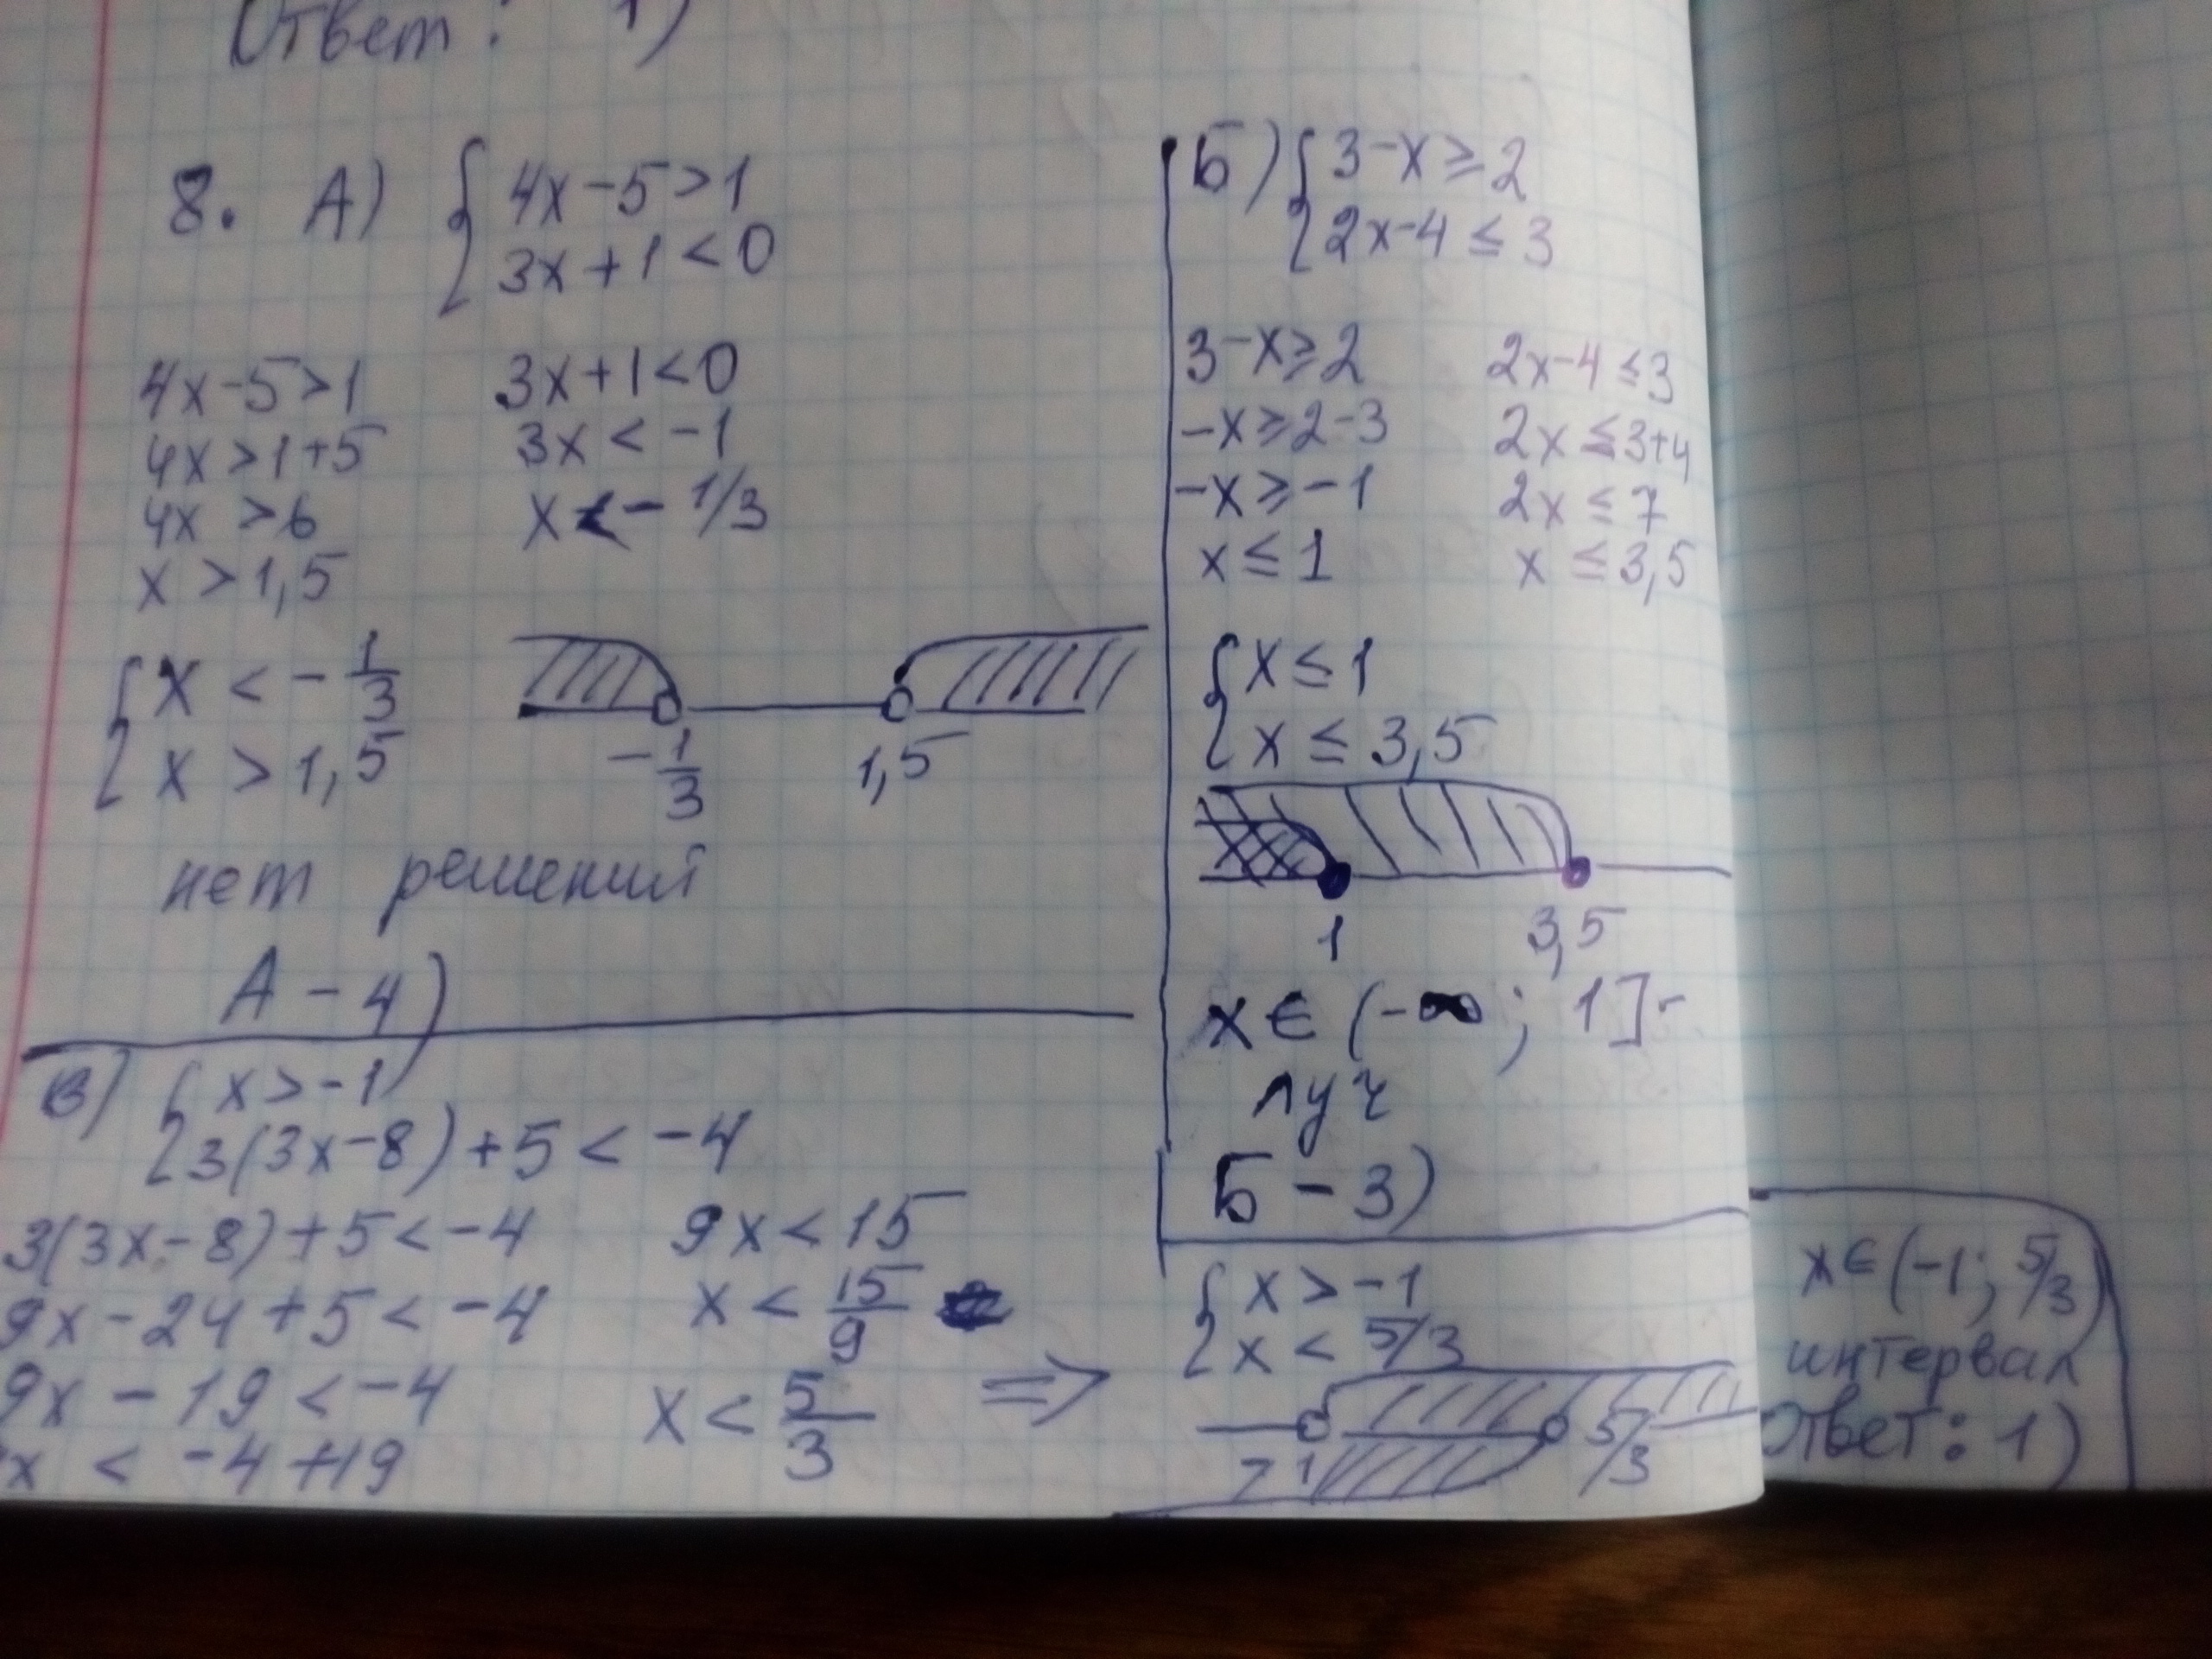 Ответ: 1)
8. А) { 4x-5>1
3x+1<0
4x-5>1
4x>1+5
4x>6
x>1,5
3x+1<0
3x<-1
x<-1/3
{ x < -1/3
x > 1,5
-1/3 1,5
нет решений
А - 4)
Б) { 3-x≥2
2x-4≤3
3-x≥2
-x≥2-3
-x≥-1
x≤1
2x-4≤3
2x≤3+4
2x≤7
x≤3,5
{ x≤1
x≤3,5
1 3,5
x∈(-∞; 1]-
луч
Б - 3)
В) { x>-1
3(3x-8)+5<-4
3(3x-8)+5<-4
9x-24+5<-4
9x-19<-4
x<-4+19
9x<15
x<15/9
x<5/3 =>
{ x>-1
x<5/3
-1 5/3
x∈(-1; 5/3)
интервал
Ответ: 1)